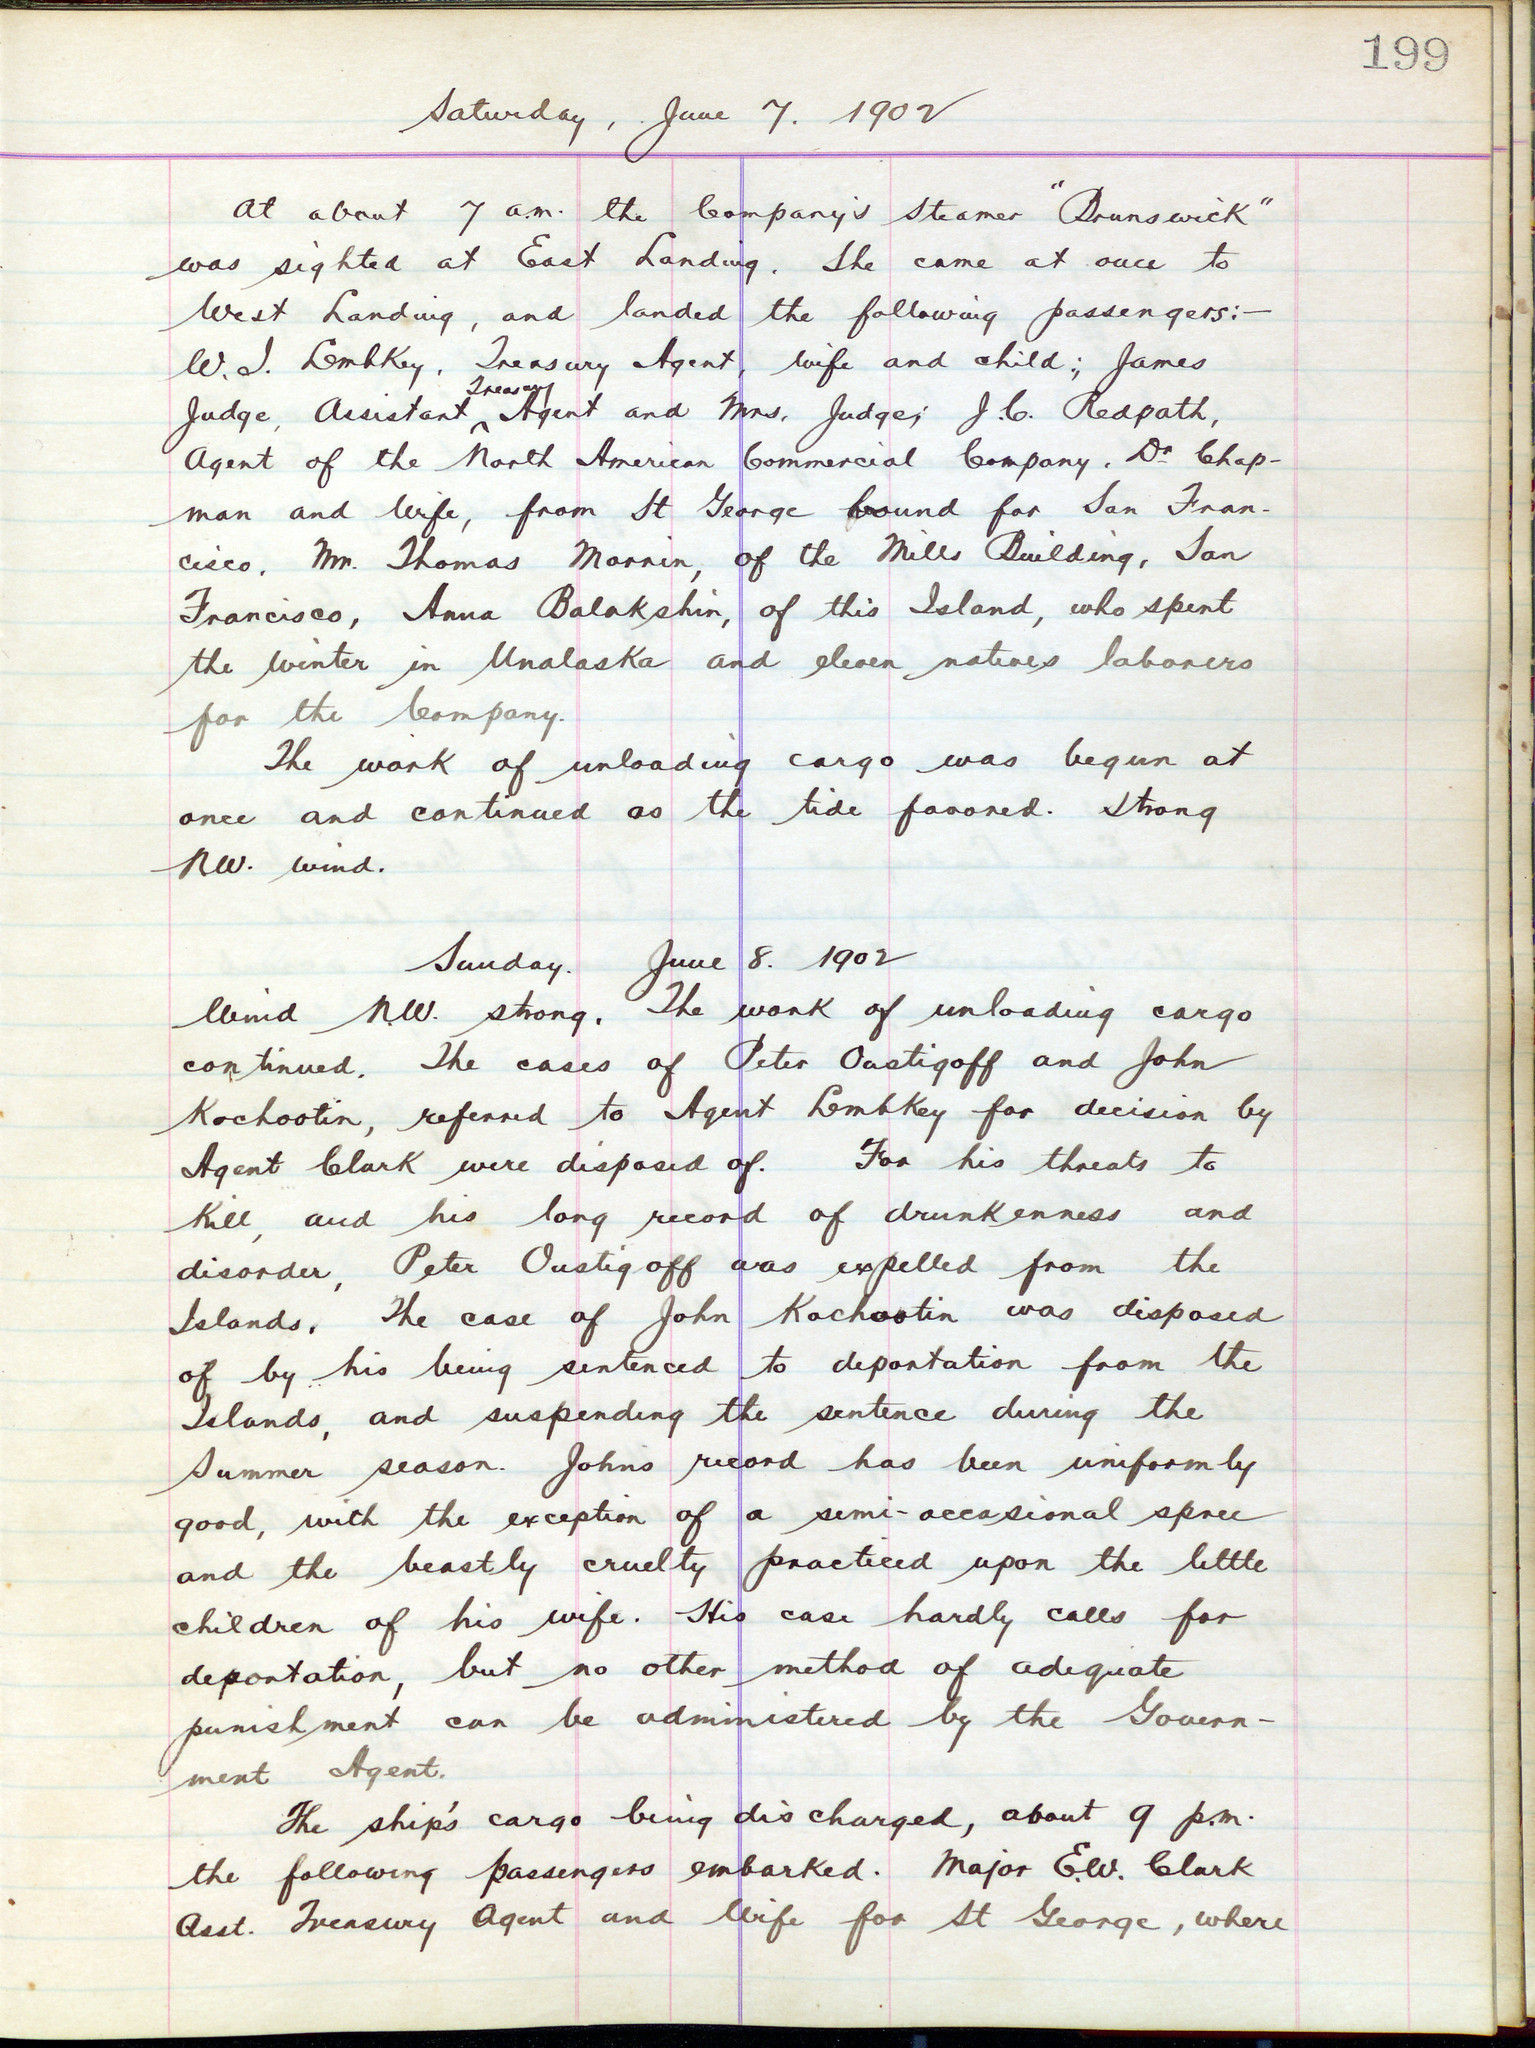 199
Saturday, June 7. 1902
At about 7 a.m. the Company's Steamer "Brunswick"
was sighted at East Landing. She came at once to
West Landing, and landed the following passengers:—
W. I. Lembkey, Treasury Agent, wife and child; James
Judge, Assistant ^Treasury Agent and Mrs. Judge; J.C. Redpath,
Agent of the North American Commercial Company. Dr Chap-
man and Wife, from St George bound for San Fran-
cisco. Mr. Thomas Morrin, of the Mills Building, San
Francisco, Anna Balakshin, of this Island, who spent
the Winter in Unalaska and eleven natives laborers
for the Company.
The work of unloading cargo was begun at
once and continued as the tide favored. Strong
NW. wind.
Sunday. June 8. 1902
Wind N.W. strong. The work of unloading cargo
continued. The cases of Peter Oustigoff and John
Kochootin, referred to Agent Lembkey for decision by
Agent Clark were disposed of. For his threats to
Kill, and his long record of drunkenness and
disorder, Peter Oustigoff was expelled from the
Islands. The case of John Kochootin was disposed
of by his being sentenced to deportation from the
Islands, and suspending the sentence during the
Summer season. Johns record has been uniformly
good, with the exception of a semi-occasional spree
and the beastly cruelty practiced upon the little
children of his wife. His case hardly calls for
deportation, but no other method of adequate
punishment can be administered by the Govern-
ment Agent.
The ship's cargo being discharged, about 9 p.m.
the following passengers embarked. Major E.W. Clark
Asst. Treasury Agent and Wife for St George, where